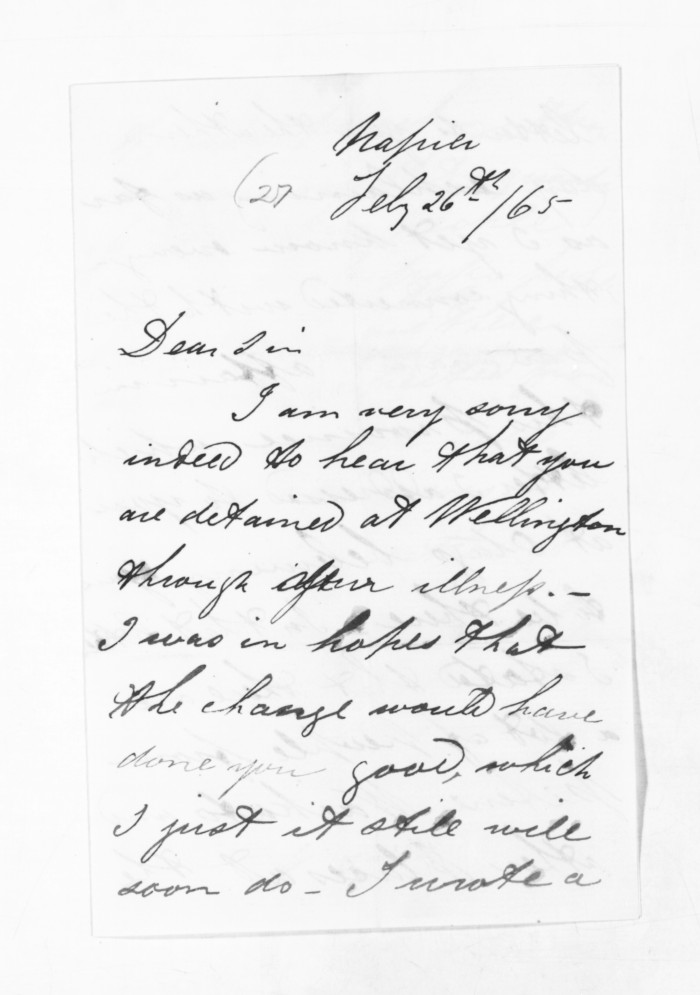 Napier
(27
Feby 26th /65
Dear Sir
I am very sorry
indeed to hear that you
are detained at Wellington
through illness. -
I was in hopes that
the change would have
done you good, which
I just it still will
soon do - I wrote a